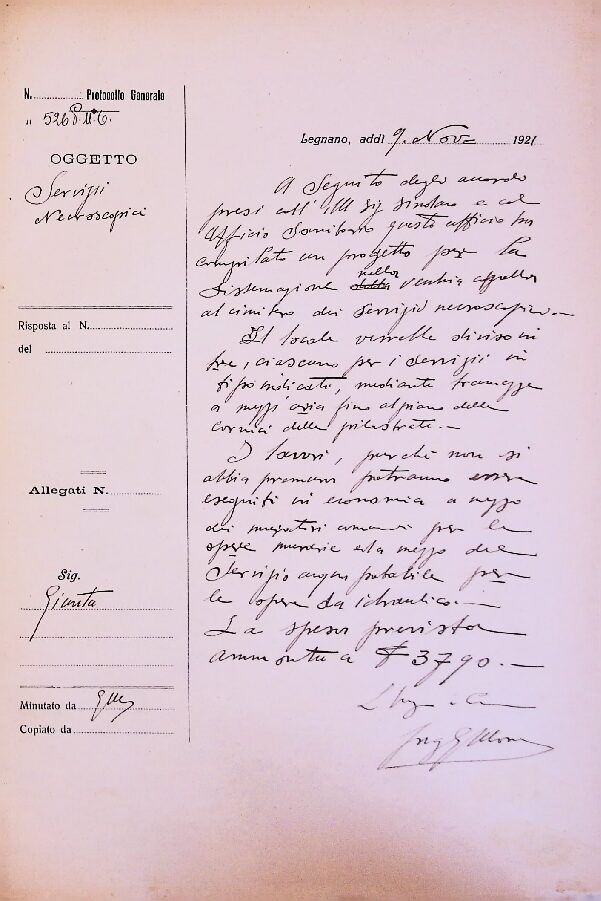 N. Protocollo Generale
„ 526 P.U.C.
OGGETTO
Servizi
Necroscopici
Risposta al N.
del
Allegati N.
Sig.
Giunta
Minutato da
Copiato da
Legnano, addì 9. Nov. 1921
A seguito degli accordi
presi coll' Ill. Sig. Sindaco e col
Ufficio Sanitario questo ufficio ha
compilato un progetto per la
sistemazione nella vecchia
al cimitero dei servizi necroscopici. —
Il locale verrebbe diviso in
tre, ciascuno per i servizi in
tipo indicati, mediante tramezze
a mezz'aria fino al piano delle
cornici delle pilastrate. —
I lavori, perchè non si
abbia potranno essere
eseguiti in economia a mezzo
dei muratori per le
opere murarie ed a mezzo del
Servizio acqua potabile per
le opere da idraulico. —
La spesa prevista
ammonta a £ 3790. —
L'Ing. Capo
Ing. G.